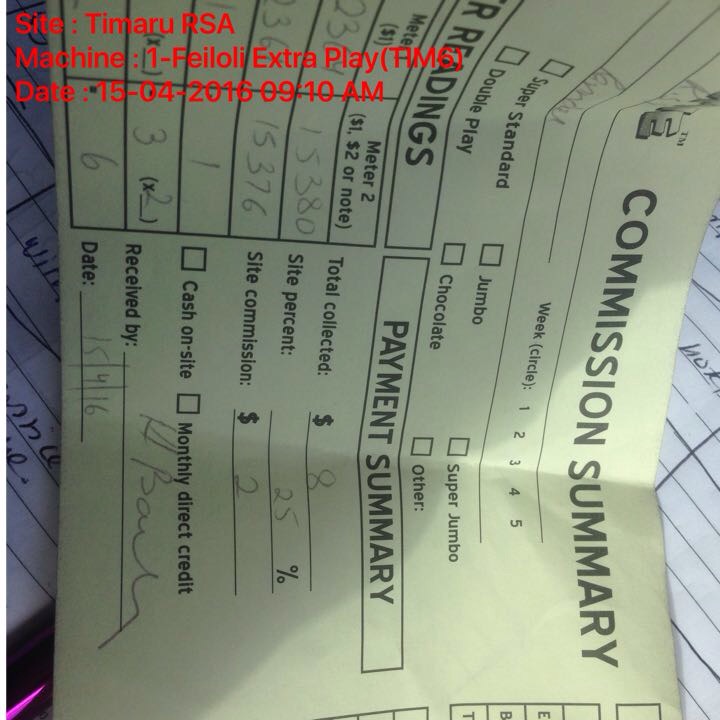 Site : Timaru RSA
Machine : 1-Feiloli Extra Play(TIM6)
Date : 15-04-2016 09:10 AM
E™
COMMISSION SUMMARY
Week (circle): 1 2 3 4 5
Super Standard
Jumbo
Super Jumbo
Double Play
Chocolate
Other:
ER READINGS
PAYMENT SUMMARY
Mete
($1)
Meter 2
($1, $2 or note)
15380
15376
1
3 (x2)
6
Total collected: $ 8
Site percent: 25 %
Site commission: $ 2
Cash on-site
Monthly direct credit
Received by:
Date: 15/4/16